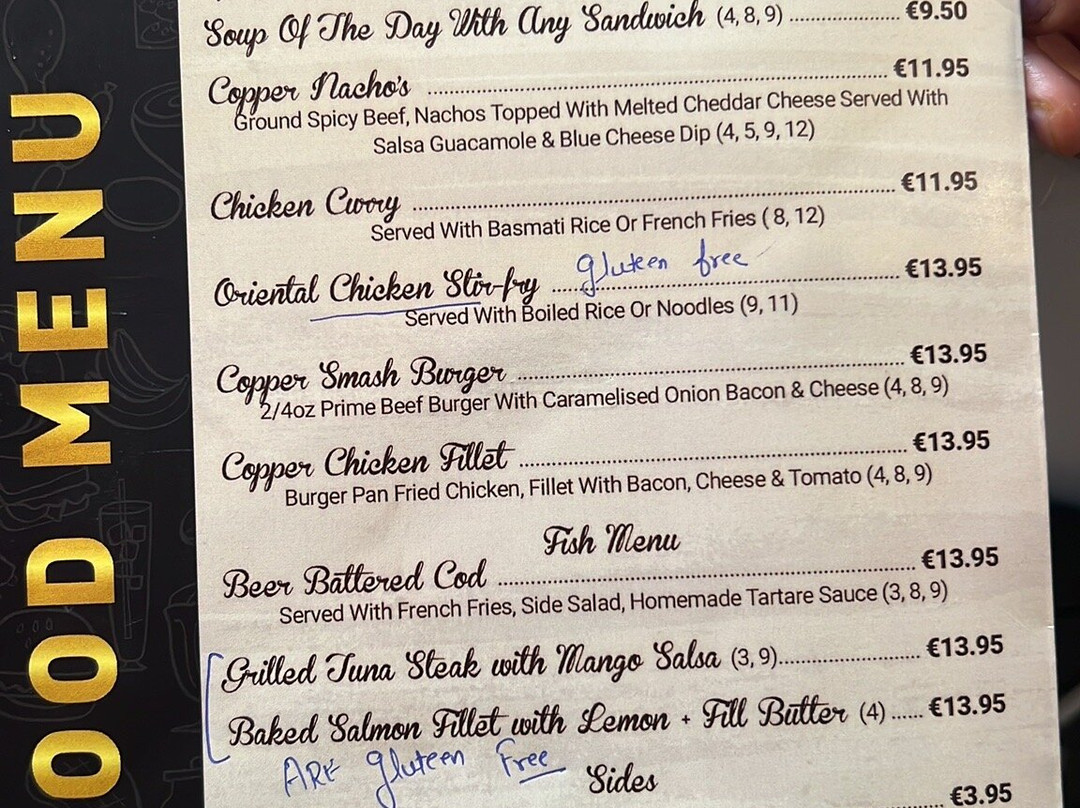 OOD MENU
Soup Of The Day With Any Sandwich (4, 8, 9) ..................... €9.50
Copper Nacho's ..................... €11.95
Ground Spicy Beef, Nachos Topped With Melted Cheddar Cheese Served With
Salsa Guacamole & Blue Cheese Dip (4, 5, 9, 12)
Chicken Curry ..................... €11.95
Served With Basmati Rice Or French Fries ( 8, 12)
gluteen free
Oriental Chicken Stir-fry ..................... €13.95
Served With Boiled Rice Or Noodles (9, 11)
Copper Smash Burger ..................... €13.95
2/4oz Prime Beef Burger With Caramelised Onion Bacon & Cheese (4, 8, 9)
Copper Chicken Fillet ..................... €13.95
Burger Pan Fried Chicken, Fillet With Bacon, Cheese & Tomato (4, 8, 9)
Fish Menu
Beer Battered Cod ..................... €13.95
Served With French Fries, Side Salad, Homemade Tartare Sauce (3, 8, 9)
Grilled Tuna Steak with Mango Salsa (3, 9)..................... €13.95
Baked Salmon Fillet with Lemon + Fill Butter (4) ...... €13.95
ARE gluteen Free
Sides
..................... €3.95